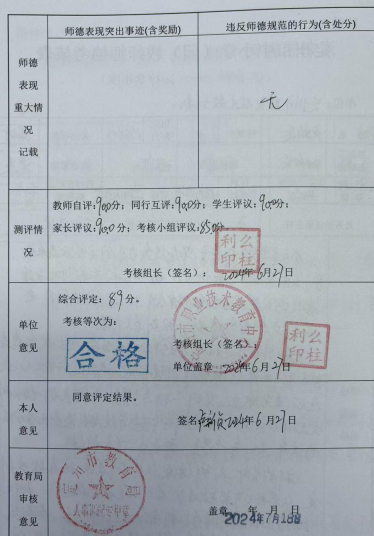 师德表现重大情况记载
师德表现突出事迹(含奖励)
违反师德规范的行为(含处分)
无
测评情况
教师自评:90.0分; 同行互评:90.0分; 学生评议:90.0分;
家长评议:90.0分 考核小组评议:85.0分。
利么
印柱
考核组长（签名）： 2024年6月27日
单位意见
综合评定:89分。
考核等次为:
合格
市职业技术教育中
考核组长（签名）:
利么
印柱
单位盖章 2024年6月27日
本人意见
同意评定结果。
签名 2024年6月27日
教育局审核意见
市教育局
盖章 年 月 日
2024年7月18日